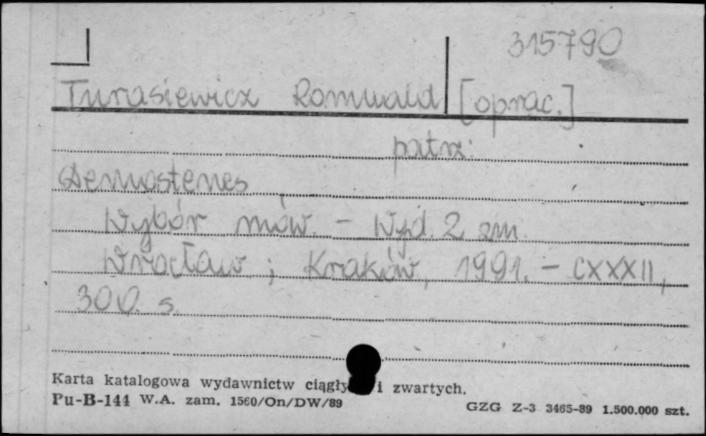 315790
Turasiewicz Romuald [oprac.]
patrz:
Demostenes
Wybór mów. - Wyd. 2 zm.
Wrocław ; Kraków, 1991. - CXXXII,
300 s.
Karta katalogowa wydawnictw ciągły i zwartych.
Pu-B-144 W.A. zam. 1560/On/DW/89
GZG Z-3 3465-89 1.500.000 szt.